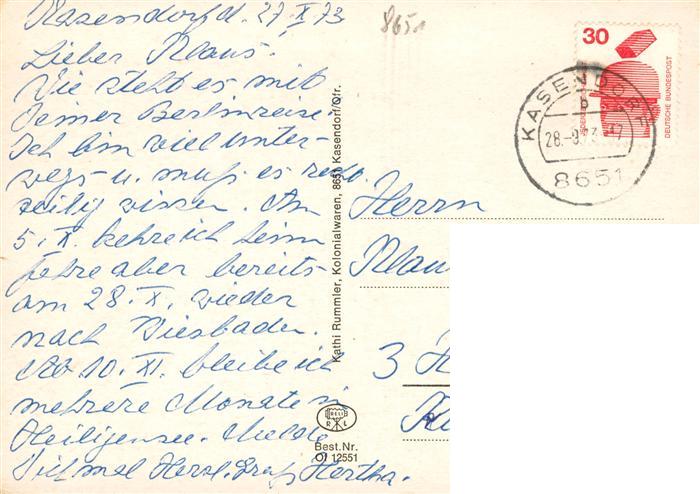 Kasendorf d. 27 X 73
Lieber Klaus.
Wie steht es mit
Deiner Berlinreise.
Ich bin viel unter-
wegs u. muß es recht
zeitig wissen. Am
5. X. kehre ich heim
fahre aber bereits
am 28. X. wieder
nach Wiesbaden.
Ab 10. XI. bleibe ich
mehrere Monate in
Heiligensee. Melde
Viel mal Herzl. Gruß Hertha.
8651
Kathi Rummler, Kolonialwaren, 8651 Kasendorf/Ofr.
RELI
R L
Best.Nr.
O/ 12551
30
DEUTSCHE BUNDESPOST
KASENDORF
b
28.-9.73-17
8651
Herrn
Klaus
3